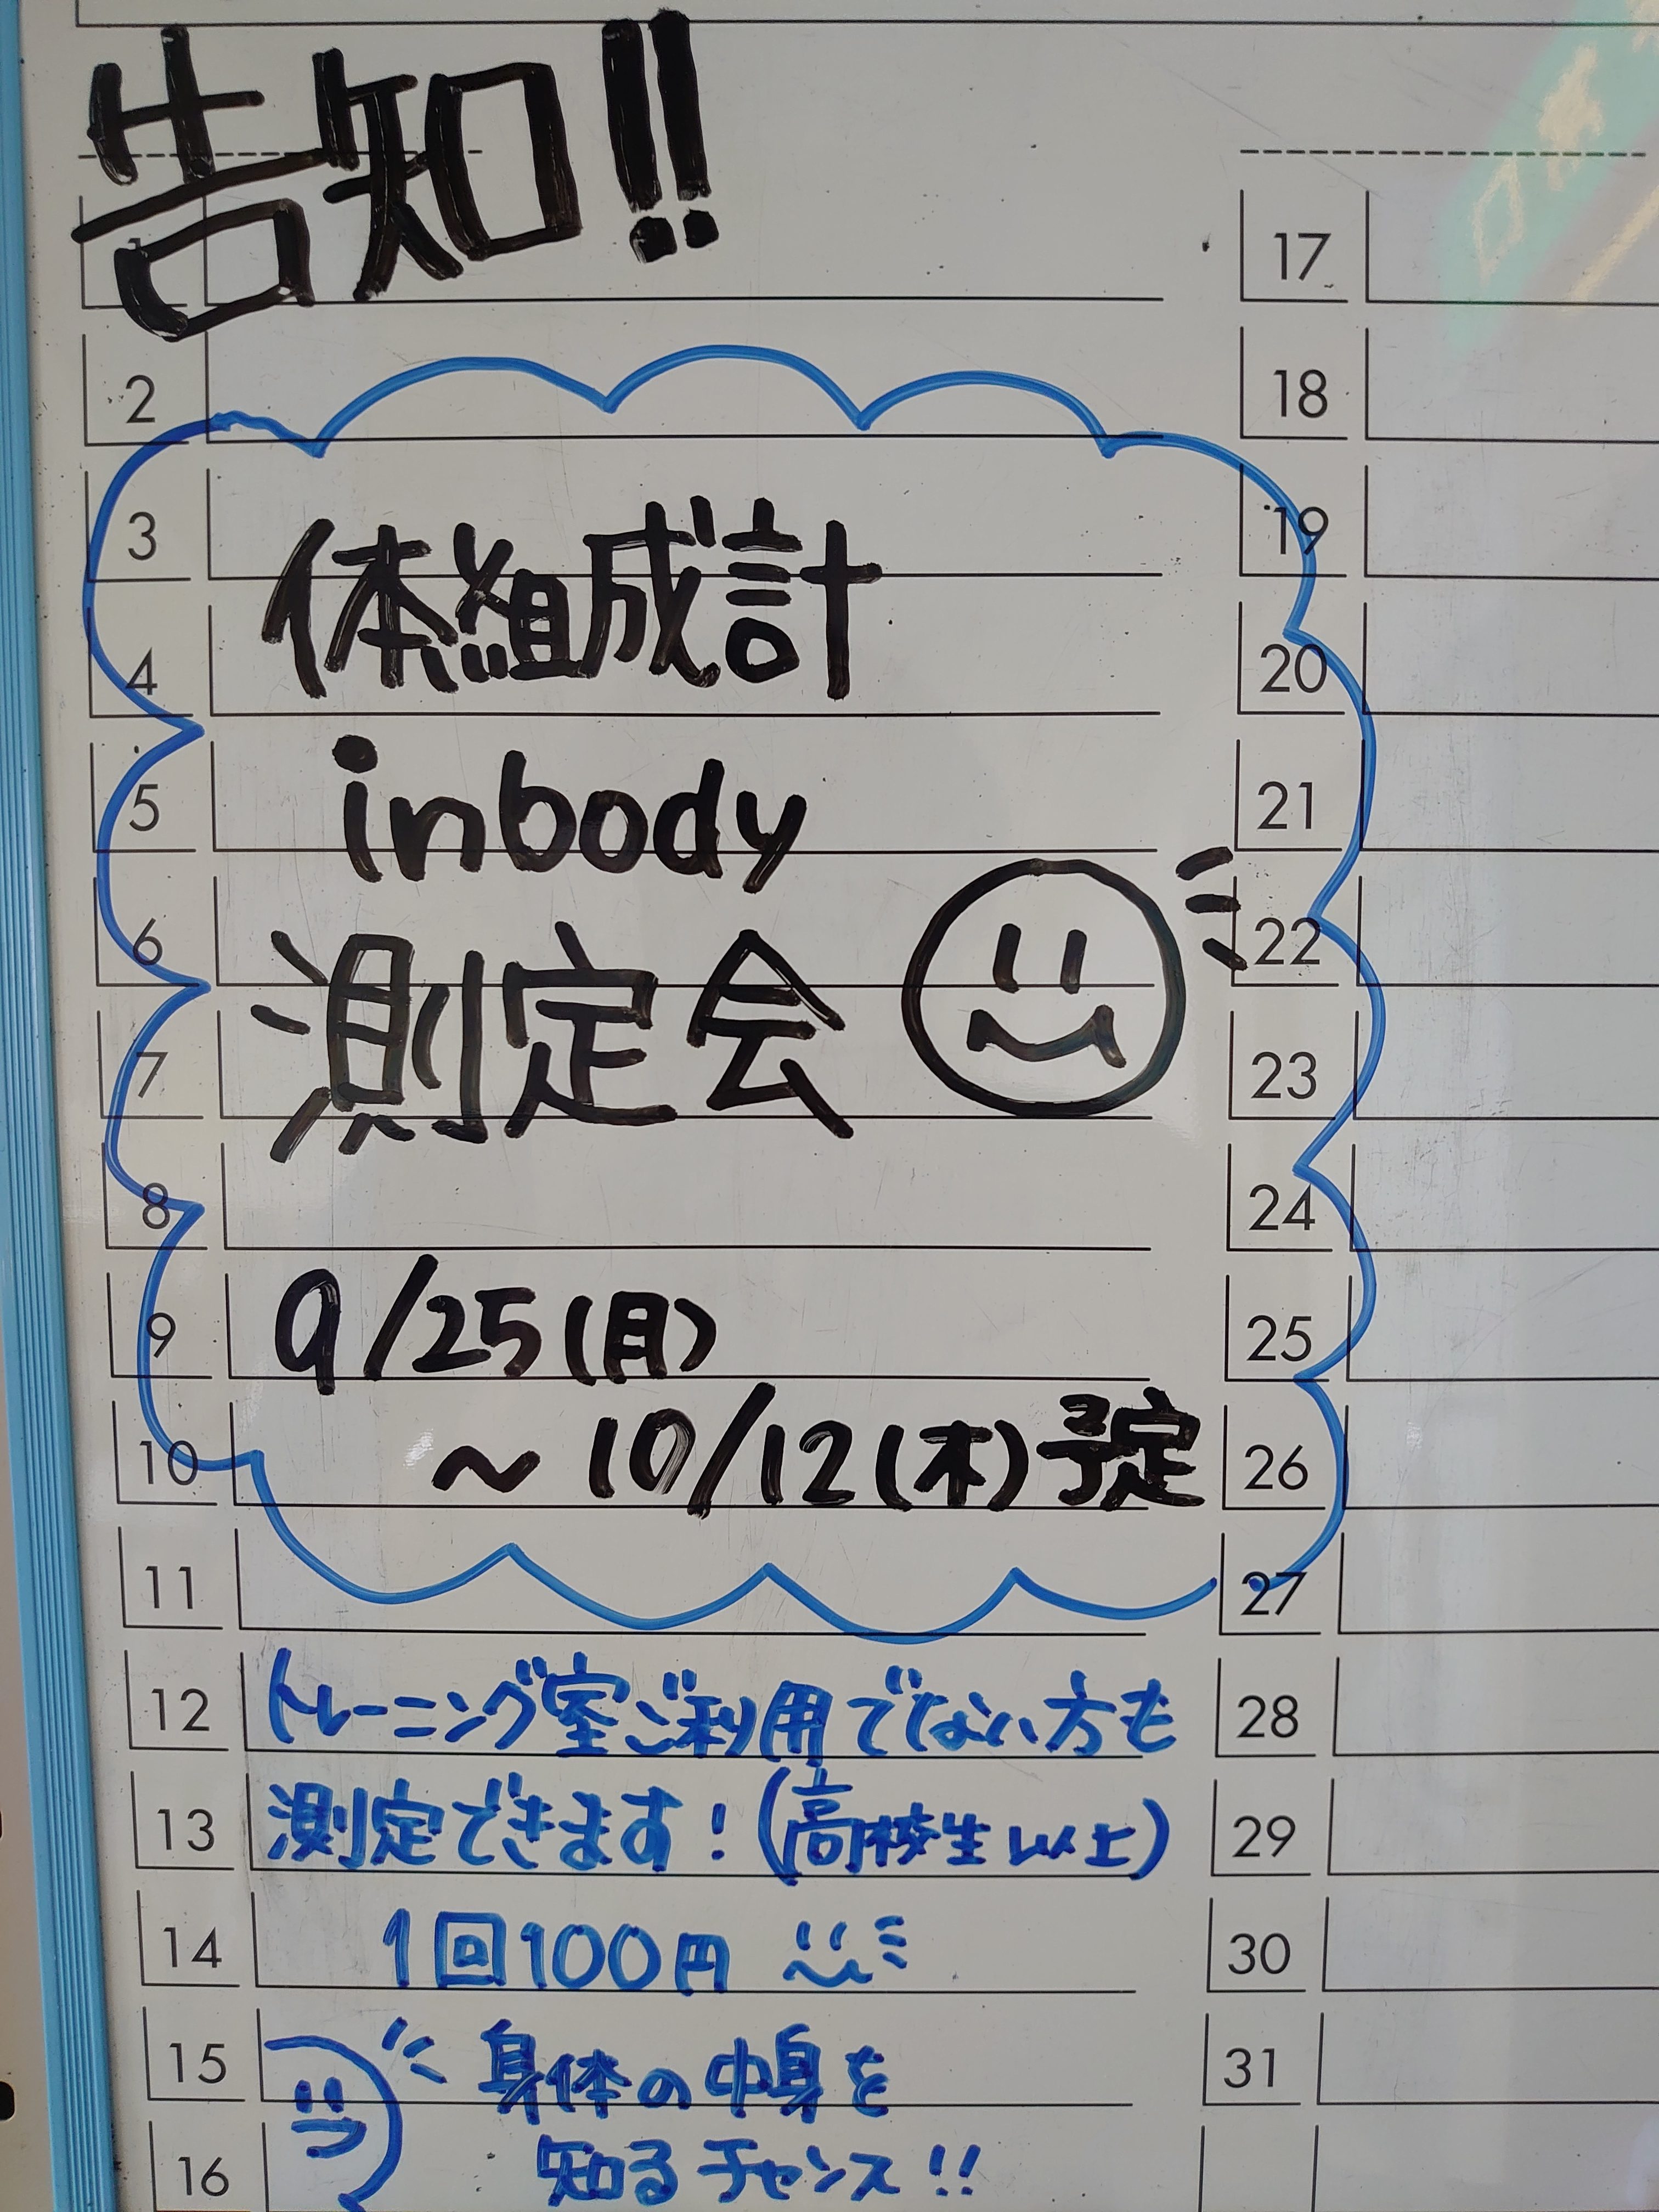 告知!!
体組成計
inbody
測定会
9/25(月)
~10/12(木)予定
トレーニング室ご利用でない方も
測定できます!(高校生以上)
1回100円
身体の中身を
知るチャンス!!
1
2
3
4
5
6
7
8
9
10
11
12
13
14
15
16
17
18
19
20
21
22
23
24
25
26
27
28
29
30
31